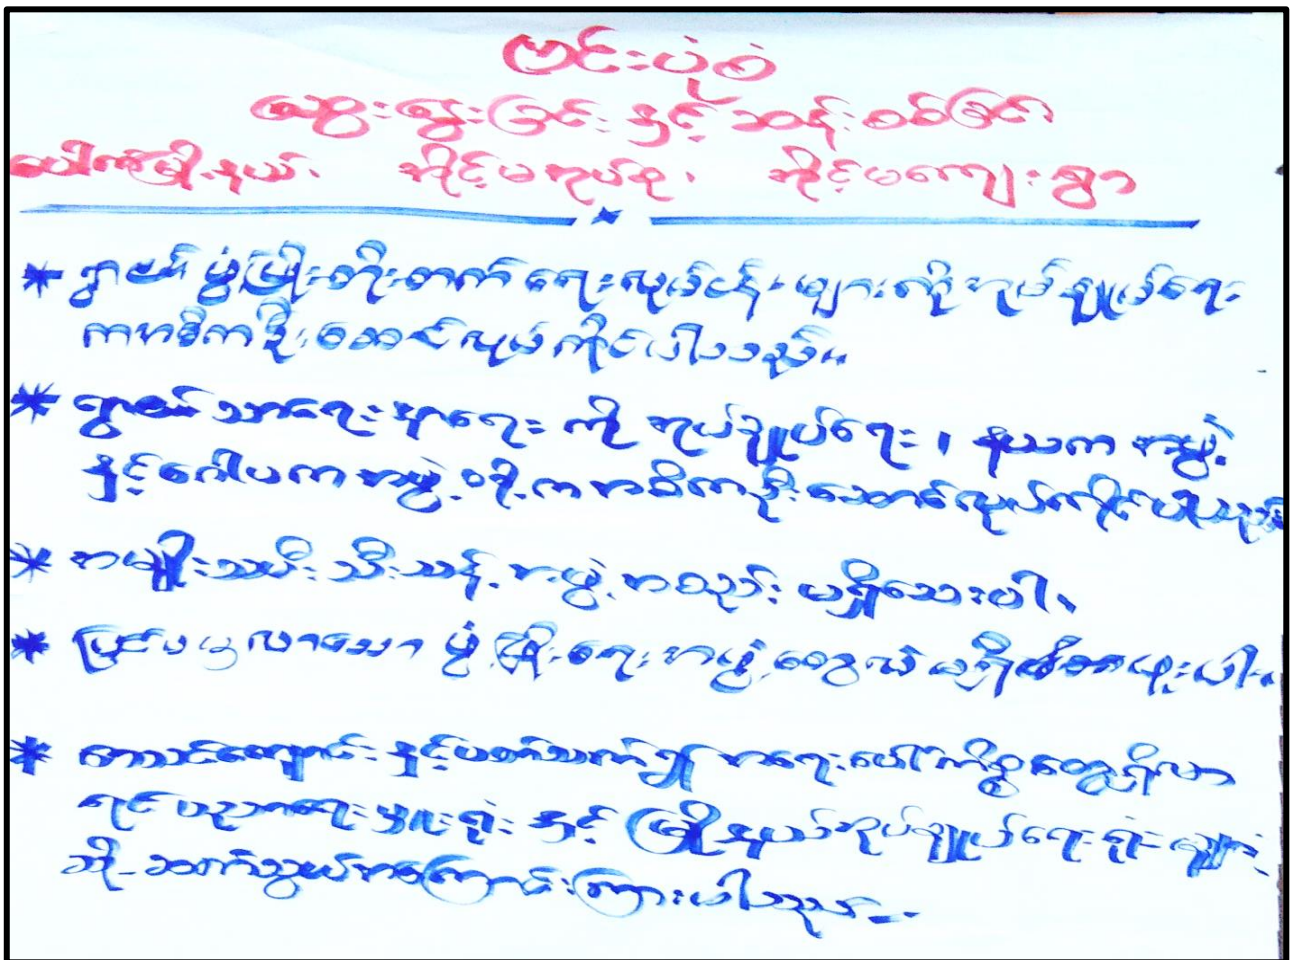 ဗင်းပုံစံ
ဆွေးနွေးခြင်း နှင့် ဆန်းစစ်ခြင်း
ပေါက်မြို့နယ်၊ အိုင့်မအုပ်စု၊ အိုင့်မကျေးရွာ
* ရွာ၏ ဖွံ့ဖြိုးတိုးတက်ရေးလုပ်ငန်းများကို အုပ်ချုပ်ရေး
ကော်မတီက ဦးဆောင်လုပ်ကိုင်ပါသည်။
* ရွာ၏ သာရေးနာရေး ကို အုပ်ချုပ်ရေး၊ နယက အဖွဲ့
နှင့် ဂေါပကအဖွဲ့ ဝင် ဦးဆောင်လုပ်ကိုင်ပါသည်
* အမျိုးသမီး သီးသန့် အဖွဲ့အစည်း မရှိသေးပါ။
* ပြင်ပမှ လာသော ဖွံ့ဖြိုးရေးအဖွဲ့တွေလဲ မရှိ ဖူးပါ။
* စာသင်ကျောင်း နှင့်ပတ်သက်၍ အရေးပေါ်ကိစ္စတွေ့ရှိလာ
ရင် ပညာရေးမှူးရုံး နှင့် မြို့နယ်အုပ်ချုပ်ရေးရုံးများ
ဆို ဆက်သွယ်အကြောင်းကြားပါသည်။